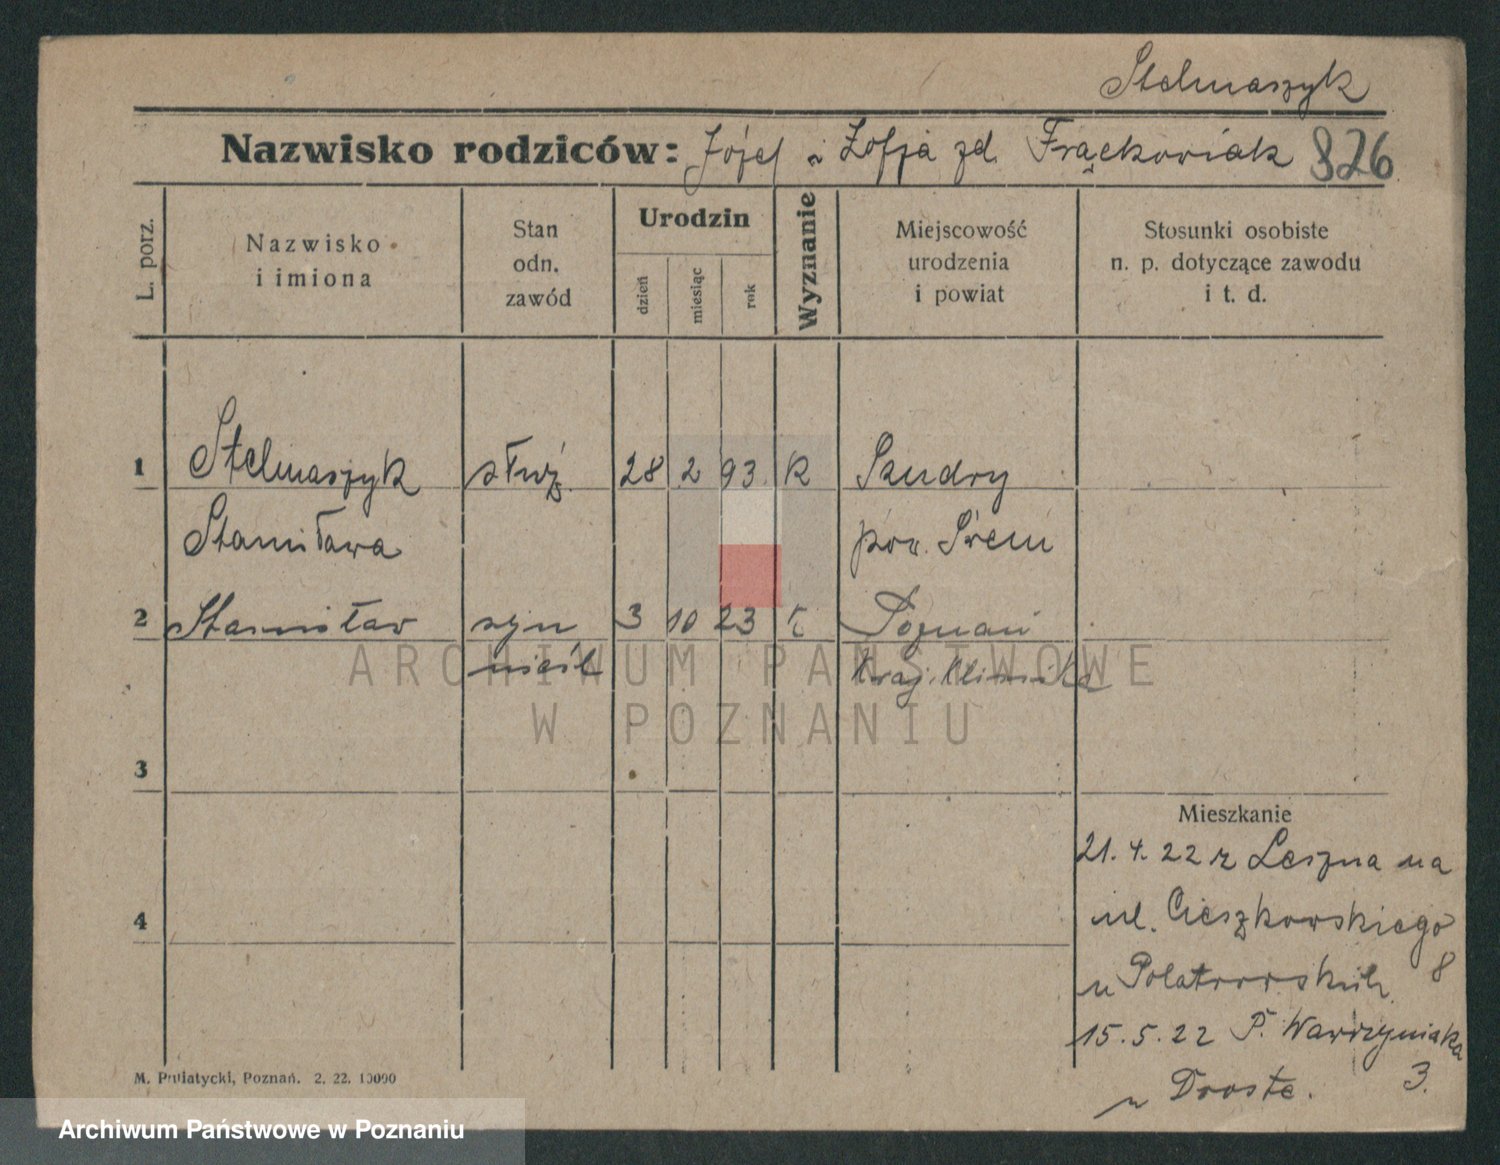 Stelmaszyk
Nazwisko rodziców: Józef i Zofja zd. Frąckowiak 826
L. porz.
Nazwisko
i imiona
Stan
odn.
zawód
Urodzin
dzień
miesiąc
rok
Wyznanie
Miejscowość
urodzenia
i powiat
Stosunki osobiste
n. p. dotyczące zawodu
i t. d.
1 Stelmaszyk służ. 28 2 93 k
Stanisława pow. Śrem
2 Stanisław syn 3 10 23 k Poznań
nieśl Kraj. Klinika
ARCHIWUM PAŃSTWOWE
W POZNANIU
3
Mieszkanie
21.4.22 z Leszna na
4
ul. Cieszkowskiego
8
u
15.5.22 P. Wawrzyniaka
3.
u Droste.
M. Putiatycki, Poznań. 2. 22. 10000
Archiwum Państwowe w Poznaniu